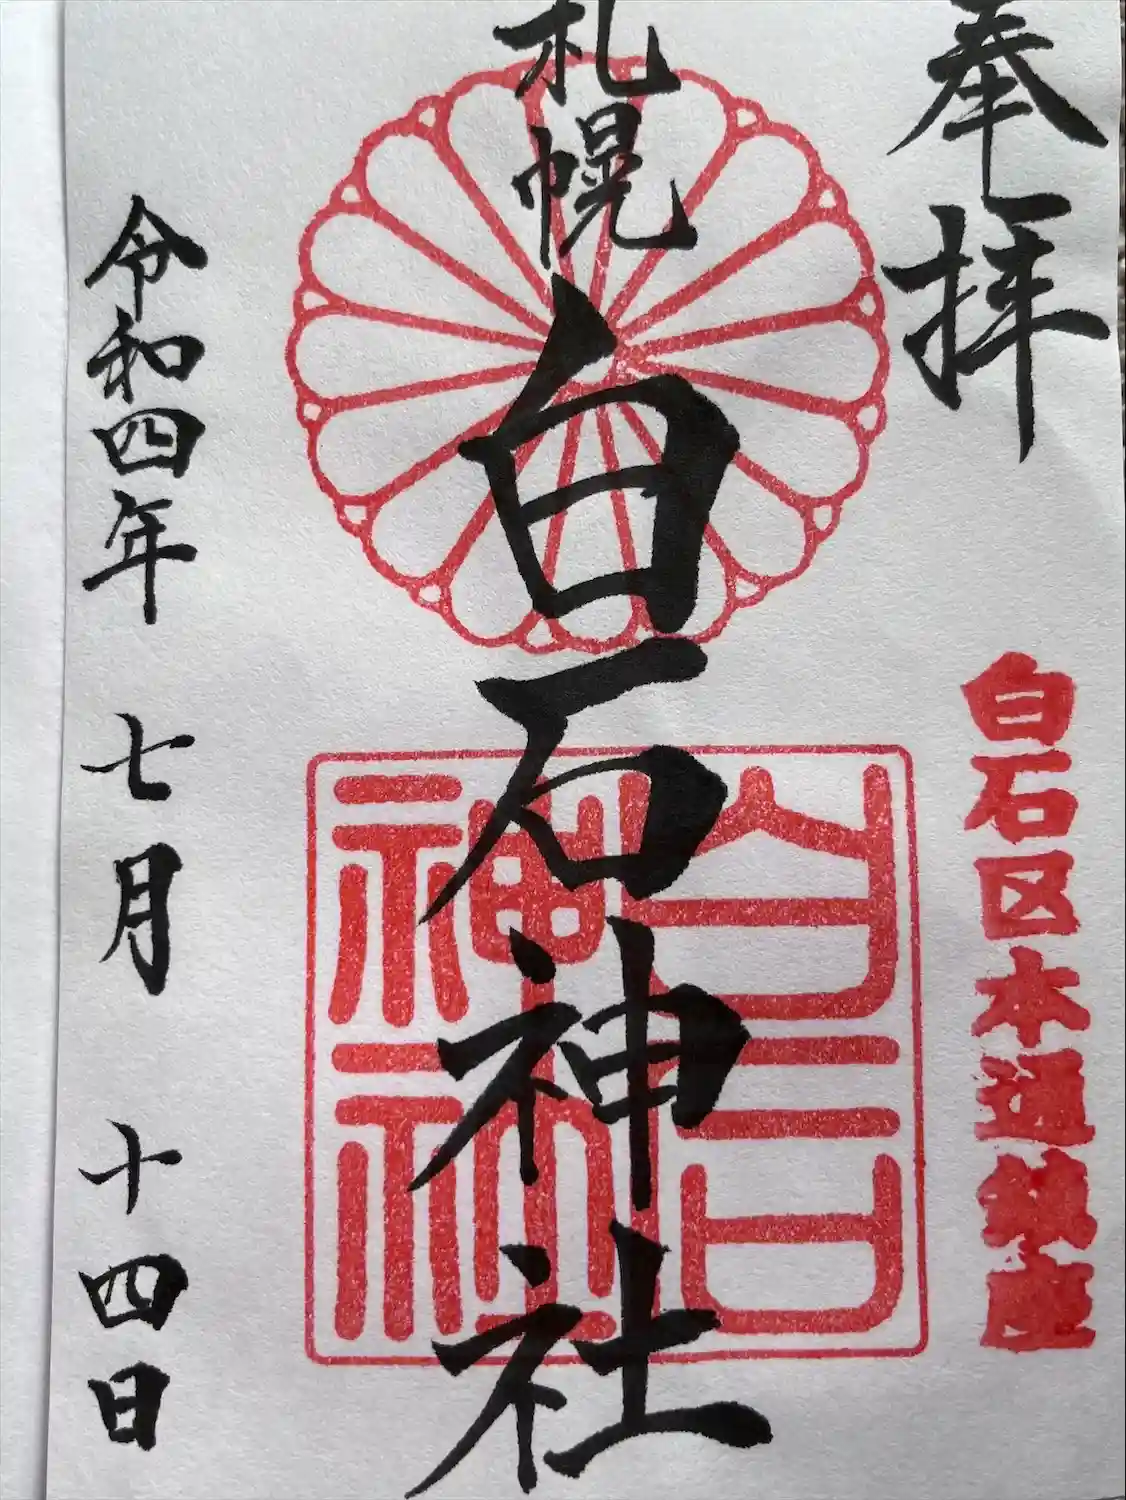 奉拝
白石区本通鎮座
札幌
白石神社
白石
神社
令和四年 七月 十四日